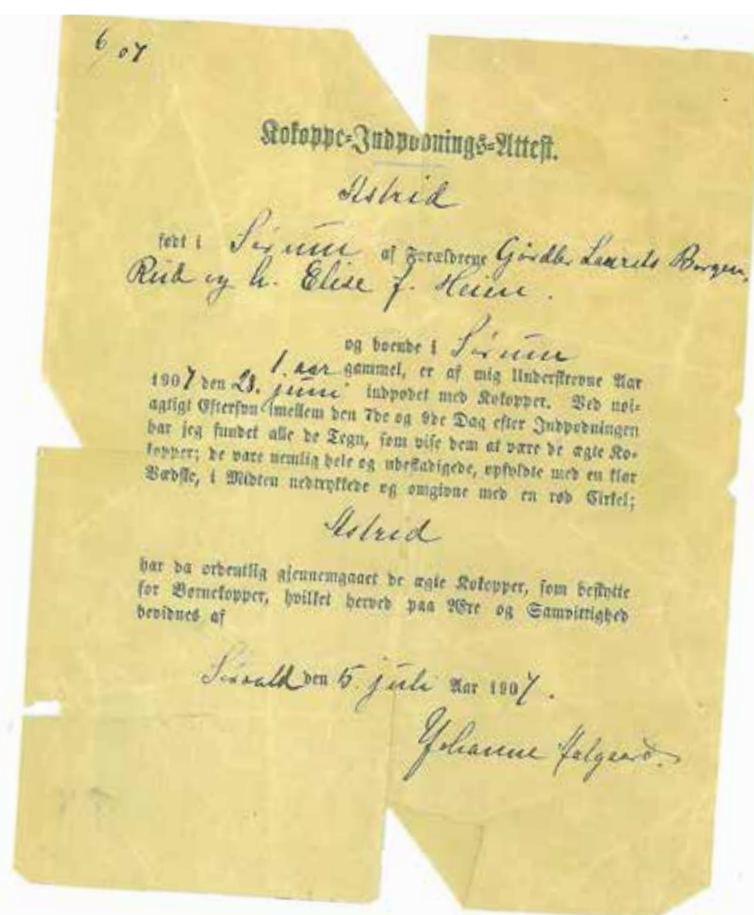 6/07
Kokoppe-Indpodnings-Attest.
Astrid
født i Sørum af Forældrene Gårdbr. Laurits Borgen
Riid og h. Elise f. Heien.
og boende i Sørum
1. aar gammel, er af mig Underskrevne Aar
1907 den 28. juni indpodet med Kokopper. Ved nøi-
agtigt Eftersyn imellem den 7de og 9de Dag efter Indpodningen
har jeg fundet alle de Tegn, som vise dem at være de ægte Ko-
kopper; de vare nemlig hele og ubeskadigede, opfyldte med en klar
Vædske, i Midten nedtrykkede og omgivne med en rød Cirkel;
Astrid
har da ordentlig gjennemgaaet de ægte Kokopper, som beskytte
for Børnekopper, hvilket herved paa Ære og Samvittighed
bevidnes af
den 5. juli Aar 1907.
Johanne